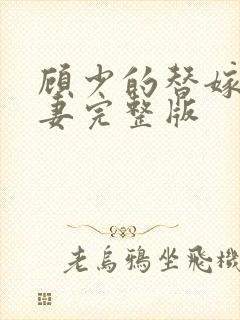 顾少的替嫁
妻完整版
老乌鸦坐飞机